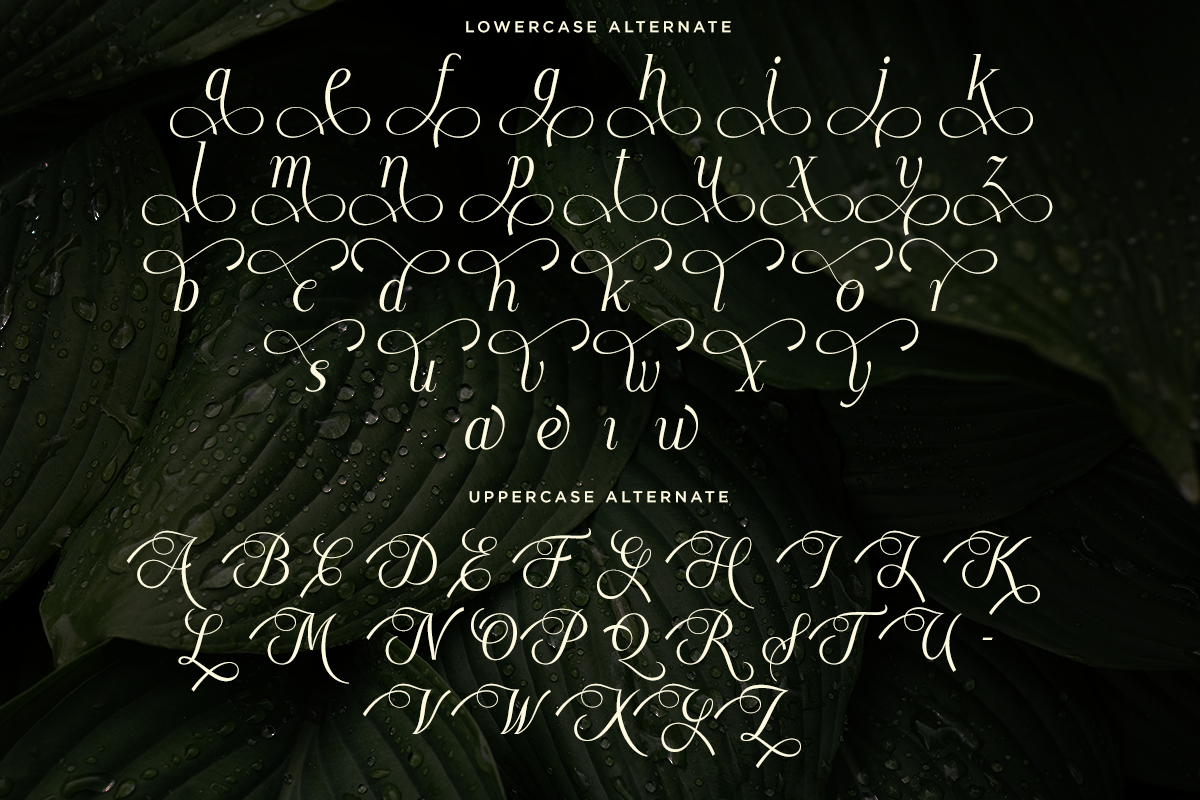 LOWERCASE ALTERNATE
a e f g h i j k
l m n p t u x y z
b c d h k l o r
s u v w x y
a e i w
UPPERCASE ALTERNATE
A B C D E F G H I J K
L M N O P Q R S T U -
V W X Y Z